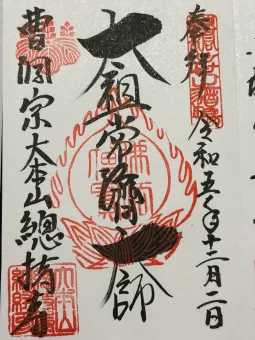 奉拝 令和五年十二月二日
太祖常濟大師
曹洞宗大本山總持寺